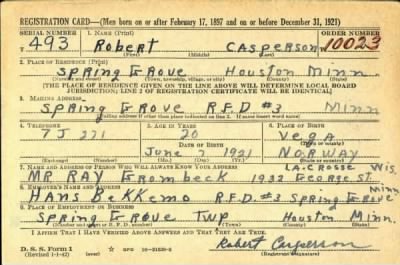 REGISTRATION CARD—(Men born on or after February 17, 1897 and on or before December 31, 1921)
SERIAL NUMBER 1. NAME (Print) ORDER NUMBER
T 493 Robert CASPERSON 10023
(First) (Middle) (Last)
2. PLACE OF RESIDENCE (Print)
SPRING GROVE Houston Minn
(Number and street) (Town, township, village, or city) (County) (State)
[THE PLACE OF RESIDENCE GIVEN ON THE LINE ABOVE WILL DETERMINE LOCAL BOARD
JURISDICTION; LINE 2 OF REGISTRATION CERTIFICATE WILL BE IDENTICAL]
3. MAILING ADDRESS
SPRING GROVE R.F.D. #3 Minn
[Mailing address if other than place indicated on line 2. If same insert word same]
4. TELEPHONE 5. AGE IN YEARS 6. PLACE OF BIRTH
20 VEGA
DATE OF BIRTH
271 June 7 1921 NORWAY
7. NAME AND ADDRESS OF PERSON WHO WILL ALWAYS KNOW YOUR ADDRESS LA-CROSSE Wis.
MR RAY GROMBECK 1932 GEORGE ST.
8. EMPLOYER'S NAME AND ADDRESS Minn
HANS BEKKEMO R.F.D. #3 SPRING GROVE
9. PLACE OF EMPLOYMENT OR BUSINESS
SPRING GROVE TWP Houston Minn.
I AFFIRM THAT I HAVE VERIFIED ABOVE ANSWERS AND THAT THEY ARE TRUE.
D. S. S. Form 1
(Revised 1-1-42) (over) Robert Casperson
(Registrant's signature)